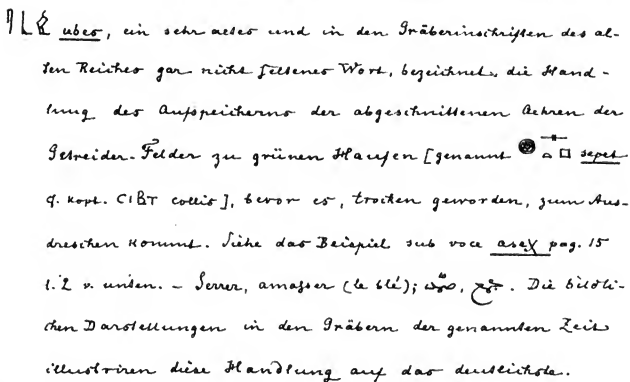 ubes, ein sehr altes und in den Gräberinschriften des al-
ten Reiches gar nicht seltenes Wort, bezeichnet die Hand-
lung des Aufspeicherns der abgeschnittenen Aehren der
Getreider-Felder zu grünen Haufen [genannt sepet
cf. kopt. ⲤⲒⲂⲦ collis], bevor es, trocken geworden, zum Aus-
dreschen kommt. Siehe das Beispiel sub voce aseχ pag. 15
l. 2 v. unten. – Serrer, amasser (le blé); Die bildli-
chen Darstellungen in den Gräbern der genannten Zeit
illustriren diese Handlung auf das deutlichste.